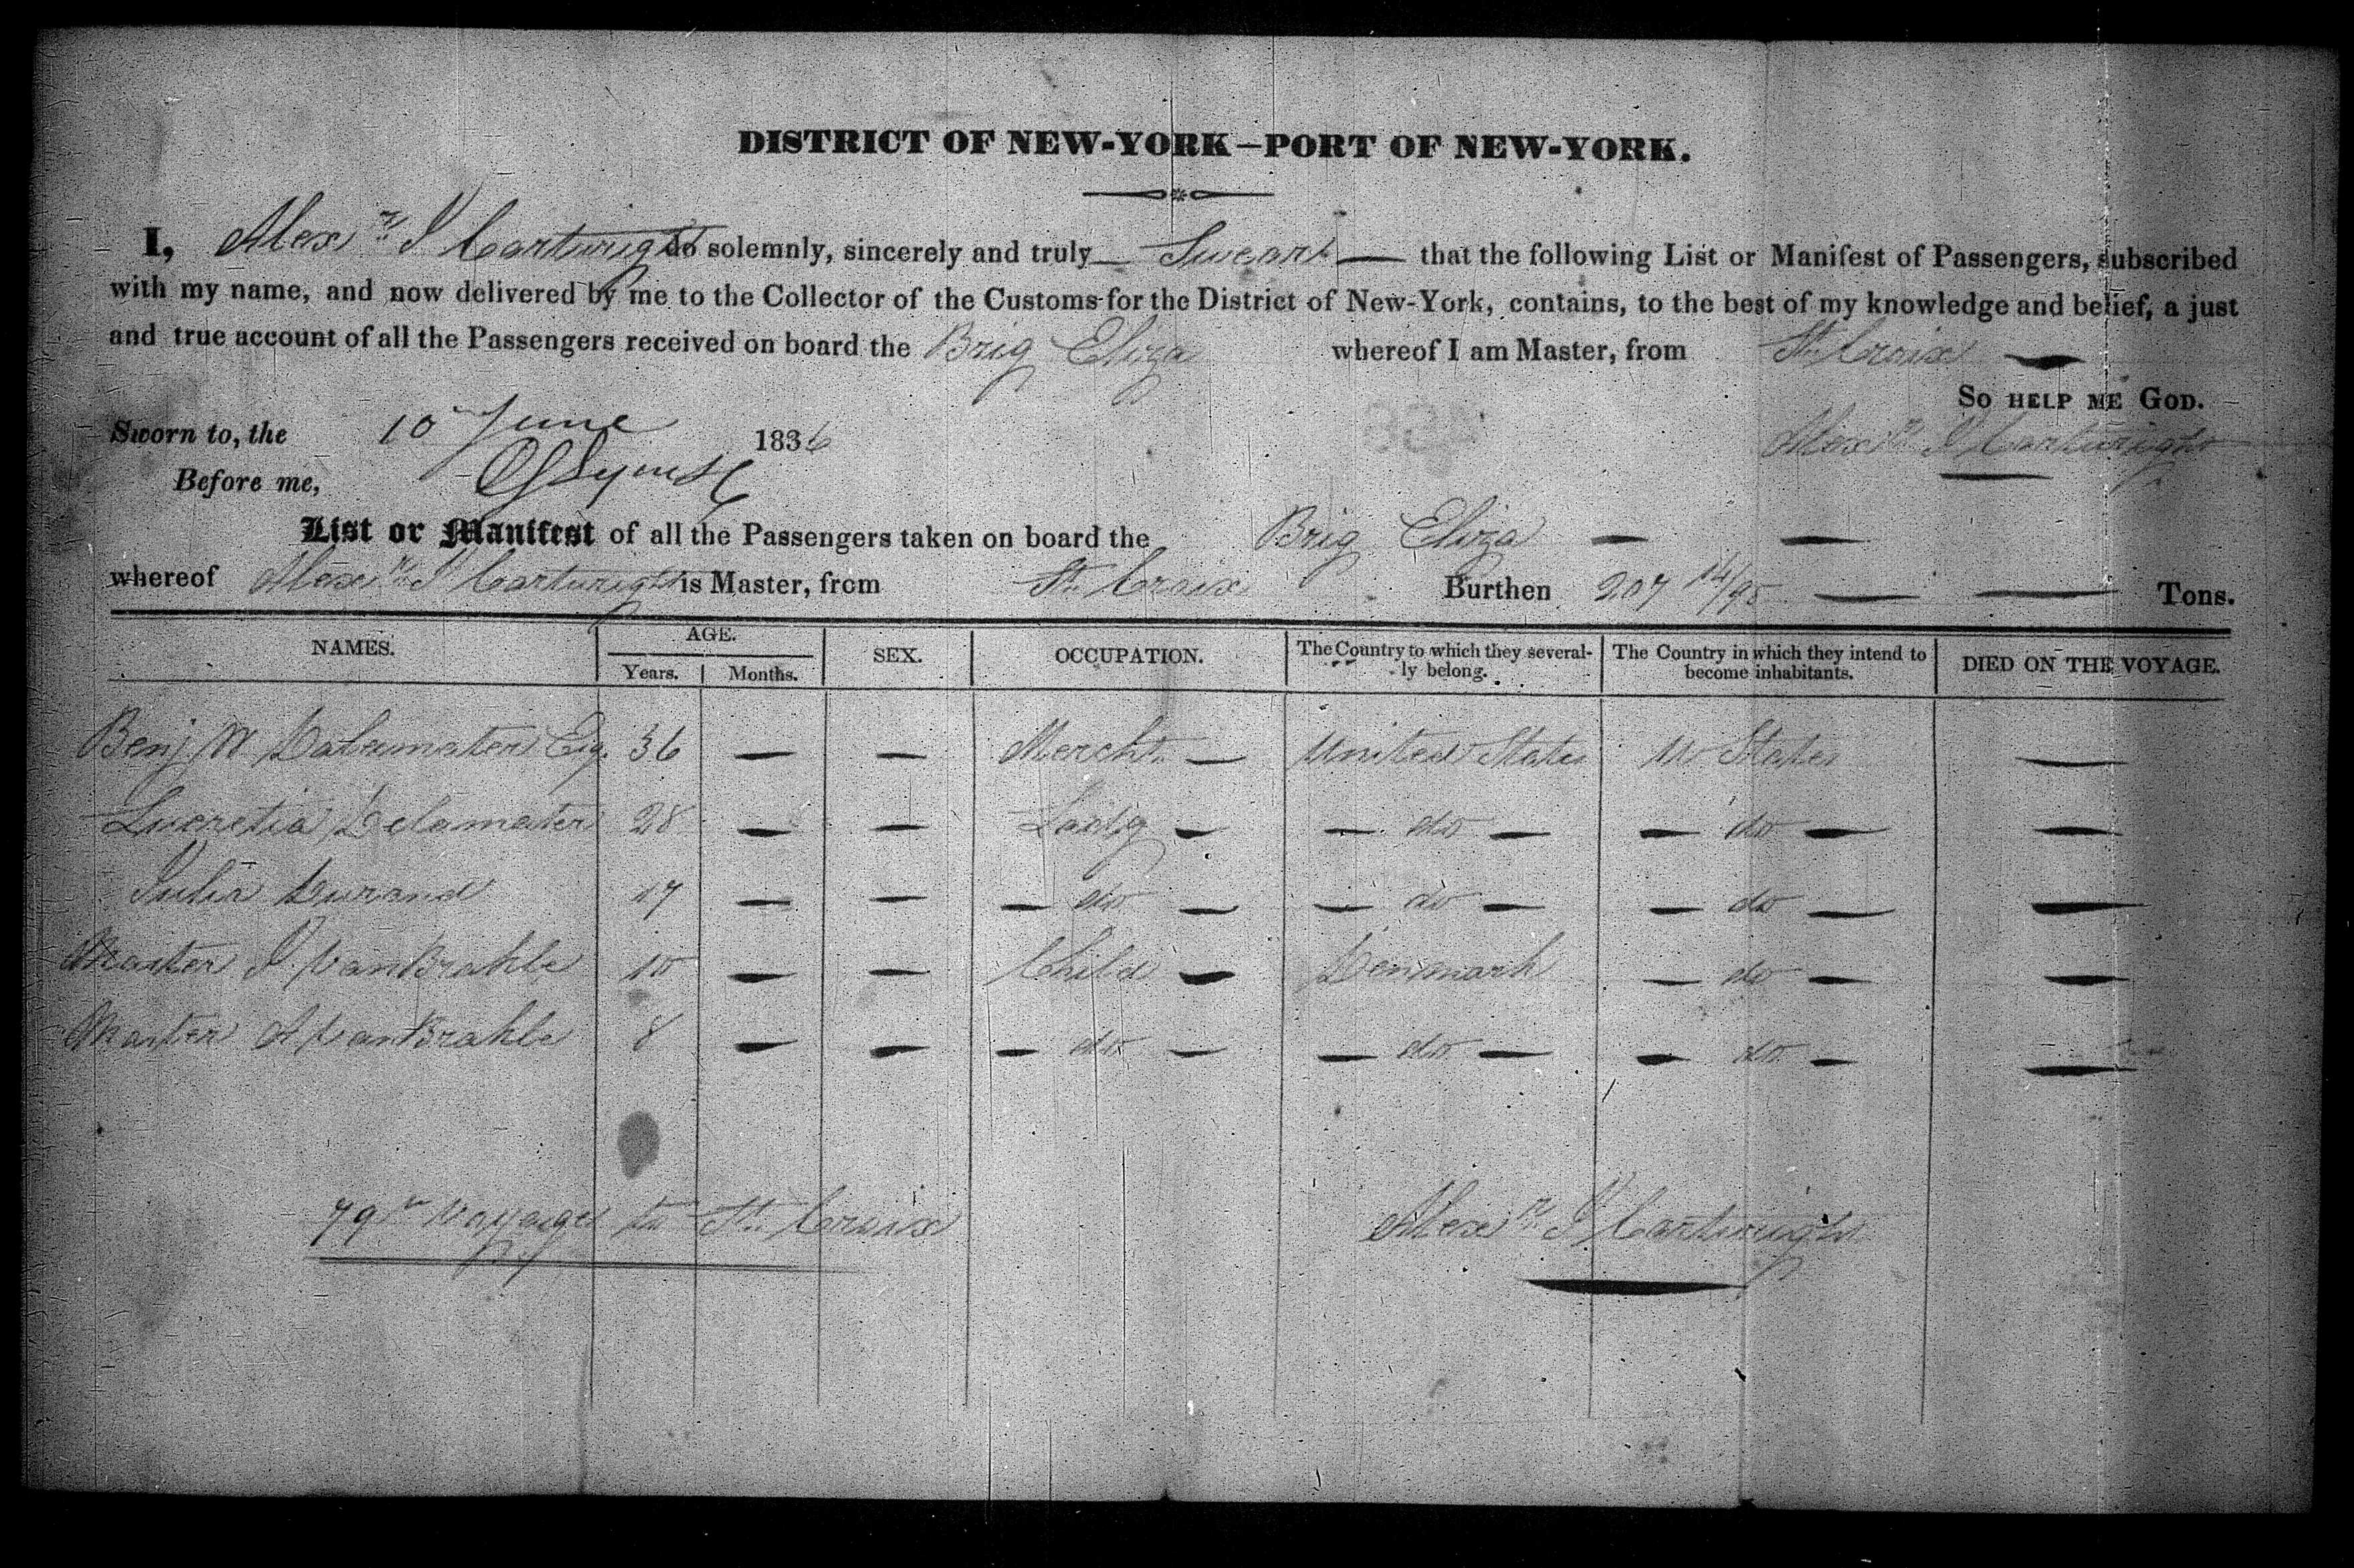 DISTRICT OF NEW-YORK—PORT OF NEW-YORK.
I, Alexr. J Cartwright do solemnly, sincerely and truly Swear that the following List or Manifest of Passengers, subscribed
with my name, and now delivered by me to the Collector of the Customs for the District of New-York, contains, to the best of my knowledge and belief, a just
and true account of all the Passengers received on board the Brig Eliza whereof I am Master, from St. Croix
So HELP ME GOD.
Sworn to, the 10 June 1836 Alexr. J Cartwright
Before me,
List or Manifest of all the Passengers taken on board the Brig Eliza
whereof Alexr. J Cartwright is Master, from St. Croix Burthen 207 14/95 Tons.
NAMES. AGE. Years. Months. SEX. OCCUPATION. The Country to which they severally belong. The Country in which they intend to become inhabitants. DIED ON THE VOYAGE.
Benj W Dalamater Esq. 36 — — Mercht. — United States U States —
Lucretia Delamater 28 — — Lady — — do — — do — —
Julia Durand 17 — — — do — — do — — do — —
Master J. VanBrakle 10 — — Child — Denmark — do — —
Master A VanBrakle 8 — — — do — — do — — do — —
79th Voyage to St. Croix Alexr. J Cartwright